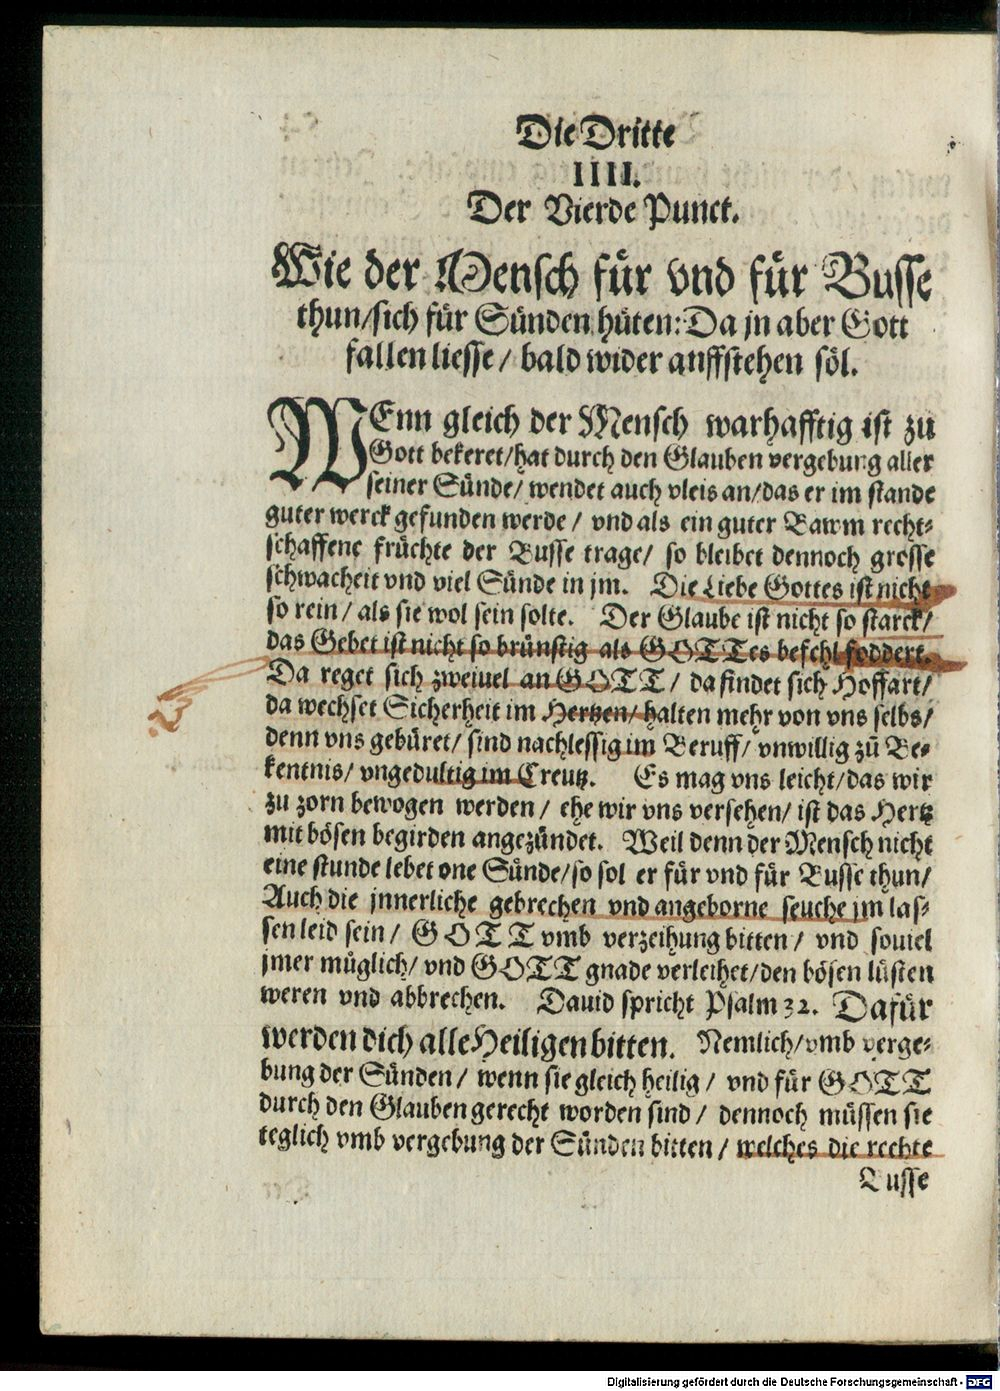 Die Dritte
IIII.
Der Vierde Punct.
Wie der Mensch für vnd für Busse
thun/sich für Sünden hüten: Da jn aber Gott
fallen liesse/ bald wider auffstehen söl.
WEnn gleich der Mensch warhafftig ist zu
Gott bekeret/hat durch den Glauben vergebung aller
seiner Sünde/ wendet auch vleis an/das er im stande
guter werck gefunden werde/ vnd als ein guter Bawm recht-
schaffene früchte der Busse trage/ so bleibet dennoch grosse
schwacheit vnd viel Sünde in jm. Die Liebe Gottes ist nicht
so rein/ als sie wol sein solte. Der Glaube ist nicht so starck/
das Gebet ist nicht so brünstig als GOTTes befehl foddert.
Da reget sich zweiuel an GOTT/ da findet sich Hoffart/
da wechset Sicherheit im Hertzen/ halten mehr von vns selbs/
denn vns gebüret/ sind nachlessig im Beruff/ vnwillig zū Be-
kentnis/ vngedultig im Creutz. Es mag vns leicht/das wir
zu zorn bewogen werden/ ehe wir vns versehen/ ist das Hertz
mit bösen begirden angezündet. Weil denn der Mensch nicht
eine stunde lebet one Sünde/so sol er für vnd für Busse thun/
Auch die jnnerliche gebrechen vnd angeborne seuche jm las-
sen leid sein/ GOTT vmb verzeihung bitten/ vnd souiel
jmer müglich/ vnd GOTT gnade verleihet/den bösen lüsten
weren vnd abbrechen. Dauid spricht Psalm 32. Dafür
werden dich alle Heiligen bitten. Nemlich/vmb verge-
bung der Sünden/ wenn sie gleich heilig/ vnd für GOTT
durch den Glauben gerecht worden sind/ dennoch müssen sie
teglich vmb vergebung der Sünden bitten/ welches die rechte
Busse
Digitalisierung gefördert durch die Deutsche Forschungsgemeinschaft - DFG